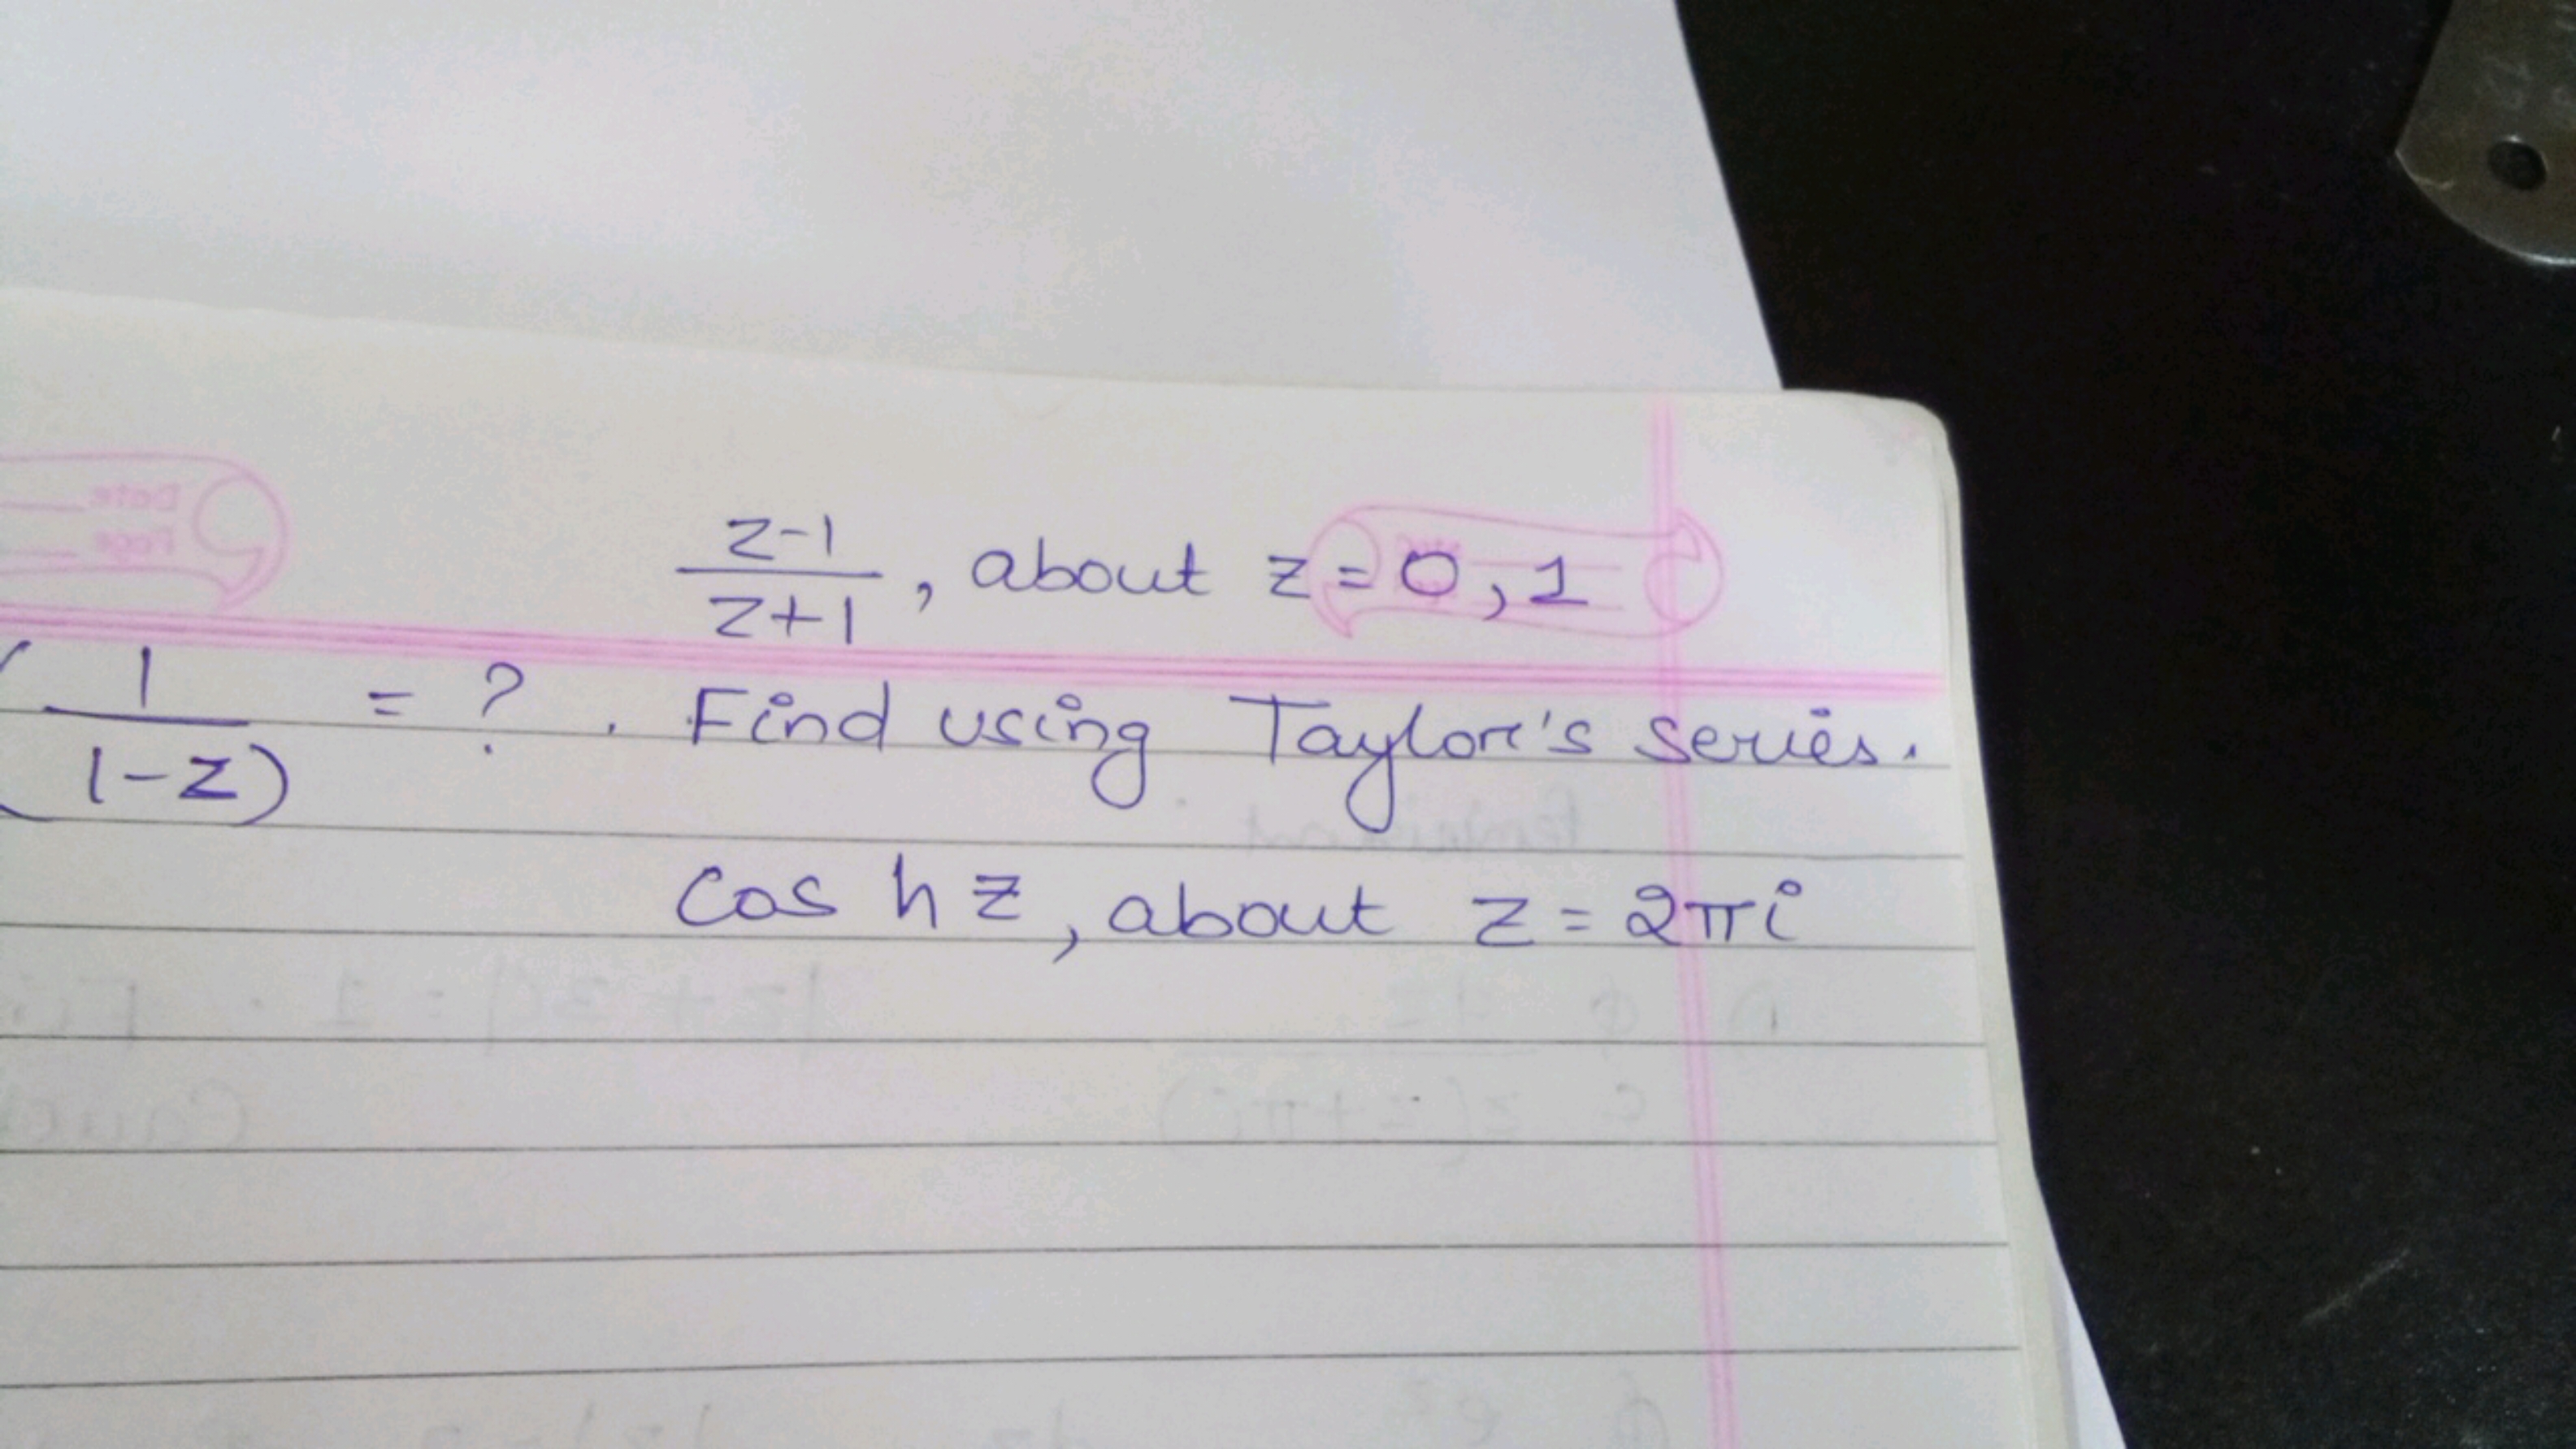 z-1 / z+1 , about z = 0, 1
( 1 / 1-z) = ? . Find using Taylor's series.
cos hz, about z = 2πi